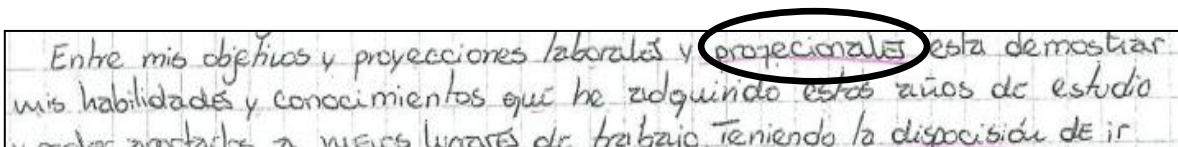 Entre mis objetivos y proyecciones laborales y proyecionales esta demostrar
mis habilidades y conocimientos que he adquirido estos años de estudio
y poder aportarlos a nuevos lugares de trabajo. Teniendo la disposición de ir